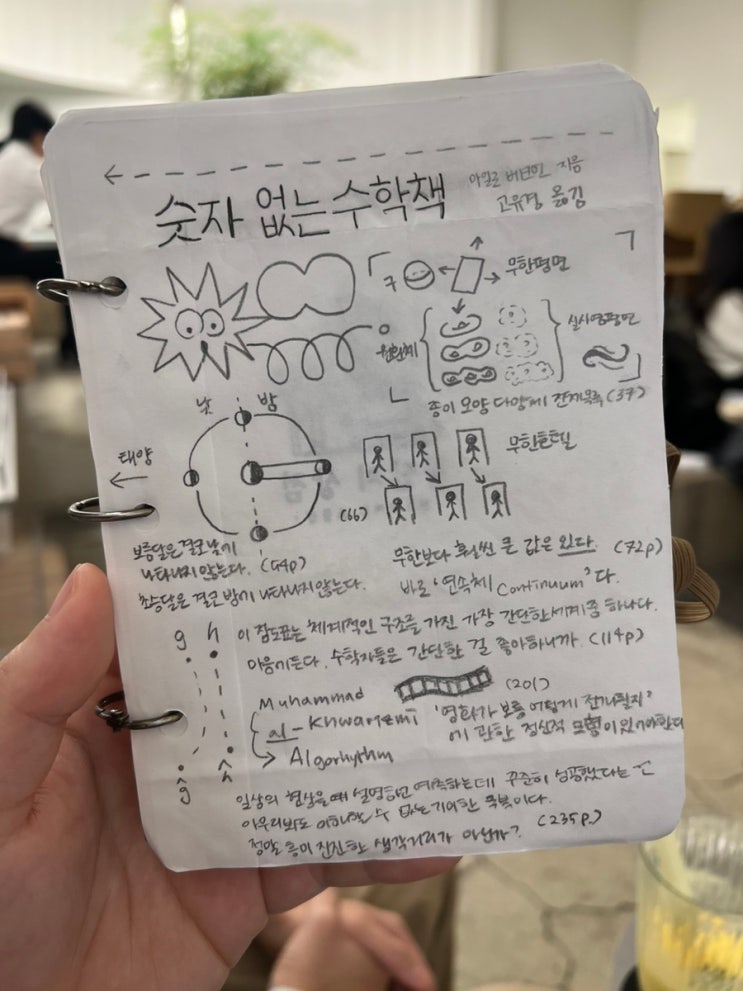 숫자 없는 수학책
마일로 베크먼 지음
고유경 옮김
「구
무한평면
원환체
실사영평면
종이 모양 다양체 전체목록 (37)
낮 밤
태양
(66)
무한호텔
보름달은 결코 낮에
나타나지 않는다. (64p)
초승달은 결코 밤에 나타나지 않는다.
무한보다 훨씬 큰 값은 있다. (72p)
바로 '연속체 Continuum'다.
g h
이 점도표는 체계적인 구조를 가진 가장 간단한 세계 중 하나다.
마음에 든다. 수학자들은 간단한 걸 좋아하니까. (114p)
ĝ ĥ
Muhammad
al-Khwarizmi
Algorhythm
(201)
'영화가 보통 어떻게 전개될지'
에 관한 정신적 모형이 있어야한다
일상의 현상을 설명하고 예측하는데 꾸준히 성공했다는 건
아무리봐도 이해할 수 없는 기이한 축복이다.
정말 흥미진진한 생각거리가 아닌가? (235p.)